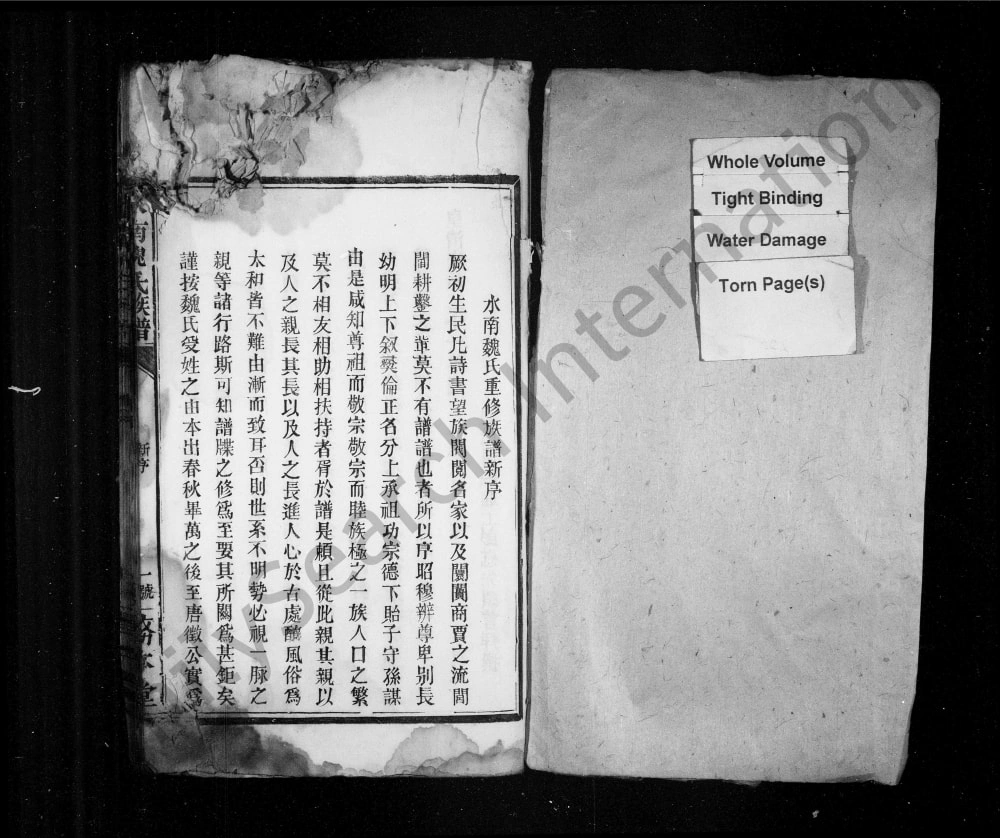 水南魏氏重修族譜新序
厥初生民凡詩書望族閥閱名家以及闤闠商賈之流閭
閻耕鑿之輩莫不有譜譜也者所以序昭穆辨尊卑別長
幼明上下叙彛倫正名分上承祖功宗德下貽子守孫謀
由是咸知尊祖而敬宗敬宗而睦族極之一族人口之繁
莫不相友相助相扶持者胥於譜是頼且從此親其親以
及人之親長其長以及人之長進人心於古處醕風俗爲
太和皆不難由漸而致耳否則世系不明勢必視一脉之
親等諸行路斯可知譜牒之修爲至要其所關爲甚鉅矣
謹按魏氏受姓之由本出春秋畢萬之後至唐徵公實爲
南魏氏族譜
新序
一號
堂
Whole Volume
Tight Binding
Water Damage
Torn Page(s)
FamilySearch International